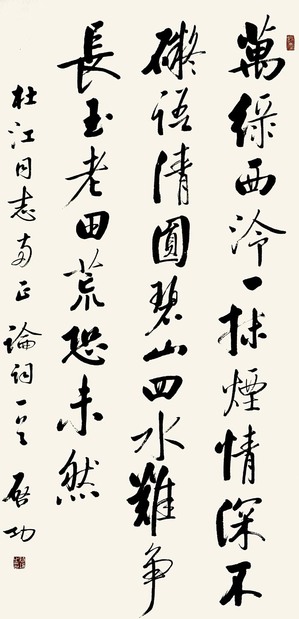 萬綠西泠一抹煙情深不
礙語清圓碧山四水難爭
長玉老田荒恐未然
杜江同志正論詞一首 啟功